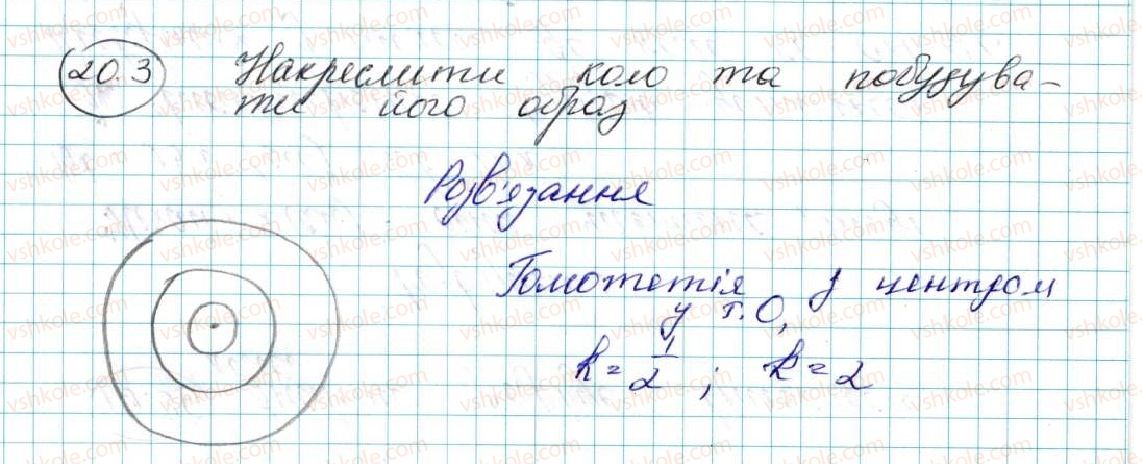 20.3 Накреслити коло та побудува-
ти його образ
Розв'язання
Гомотетія з центром
у т. О,
k = 1/2 ; k = 2